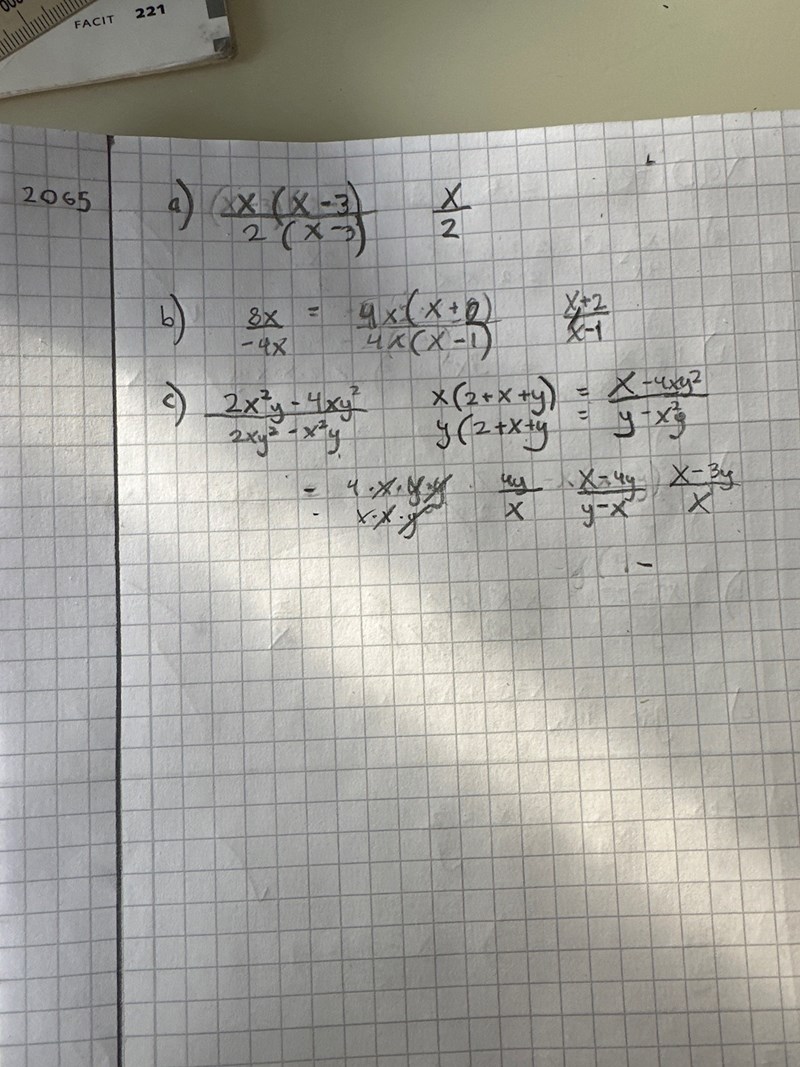 FACIT 221
2065
a) x(x-3)/2(x-3) x/2
b) 8x/-4x = 4x(x+2)/4x(x-1) x+2/x-1
c) 2x²y - 4xy²/2xy² - x²y x(2+x+y)/y(2+x+y = x-4xy²/y-x²y
= 4·x·y·y/x·x·y 4y/x x-4y/y-x x-3y/x